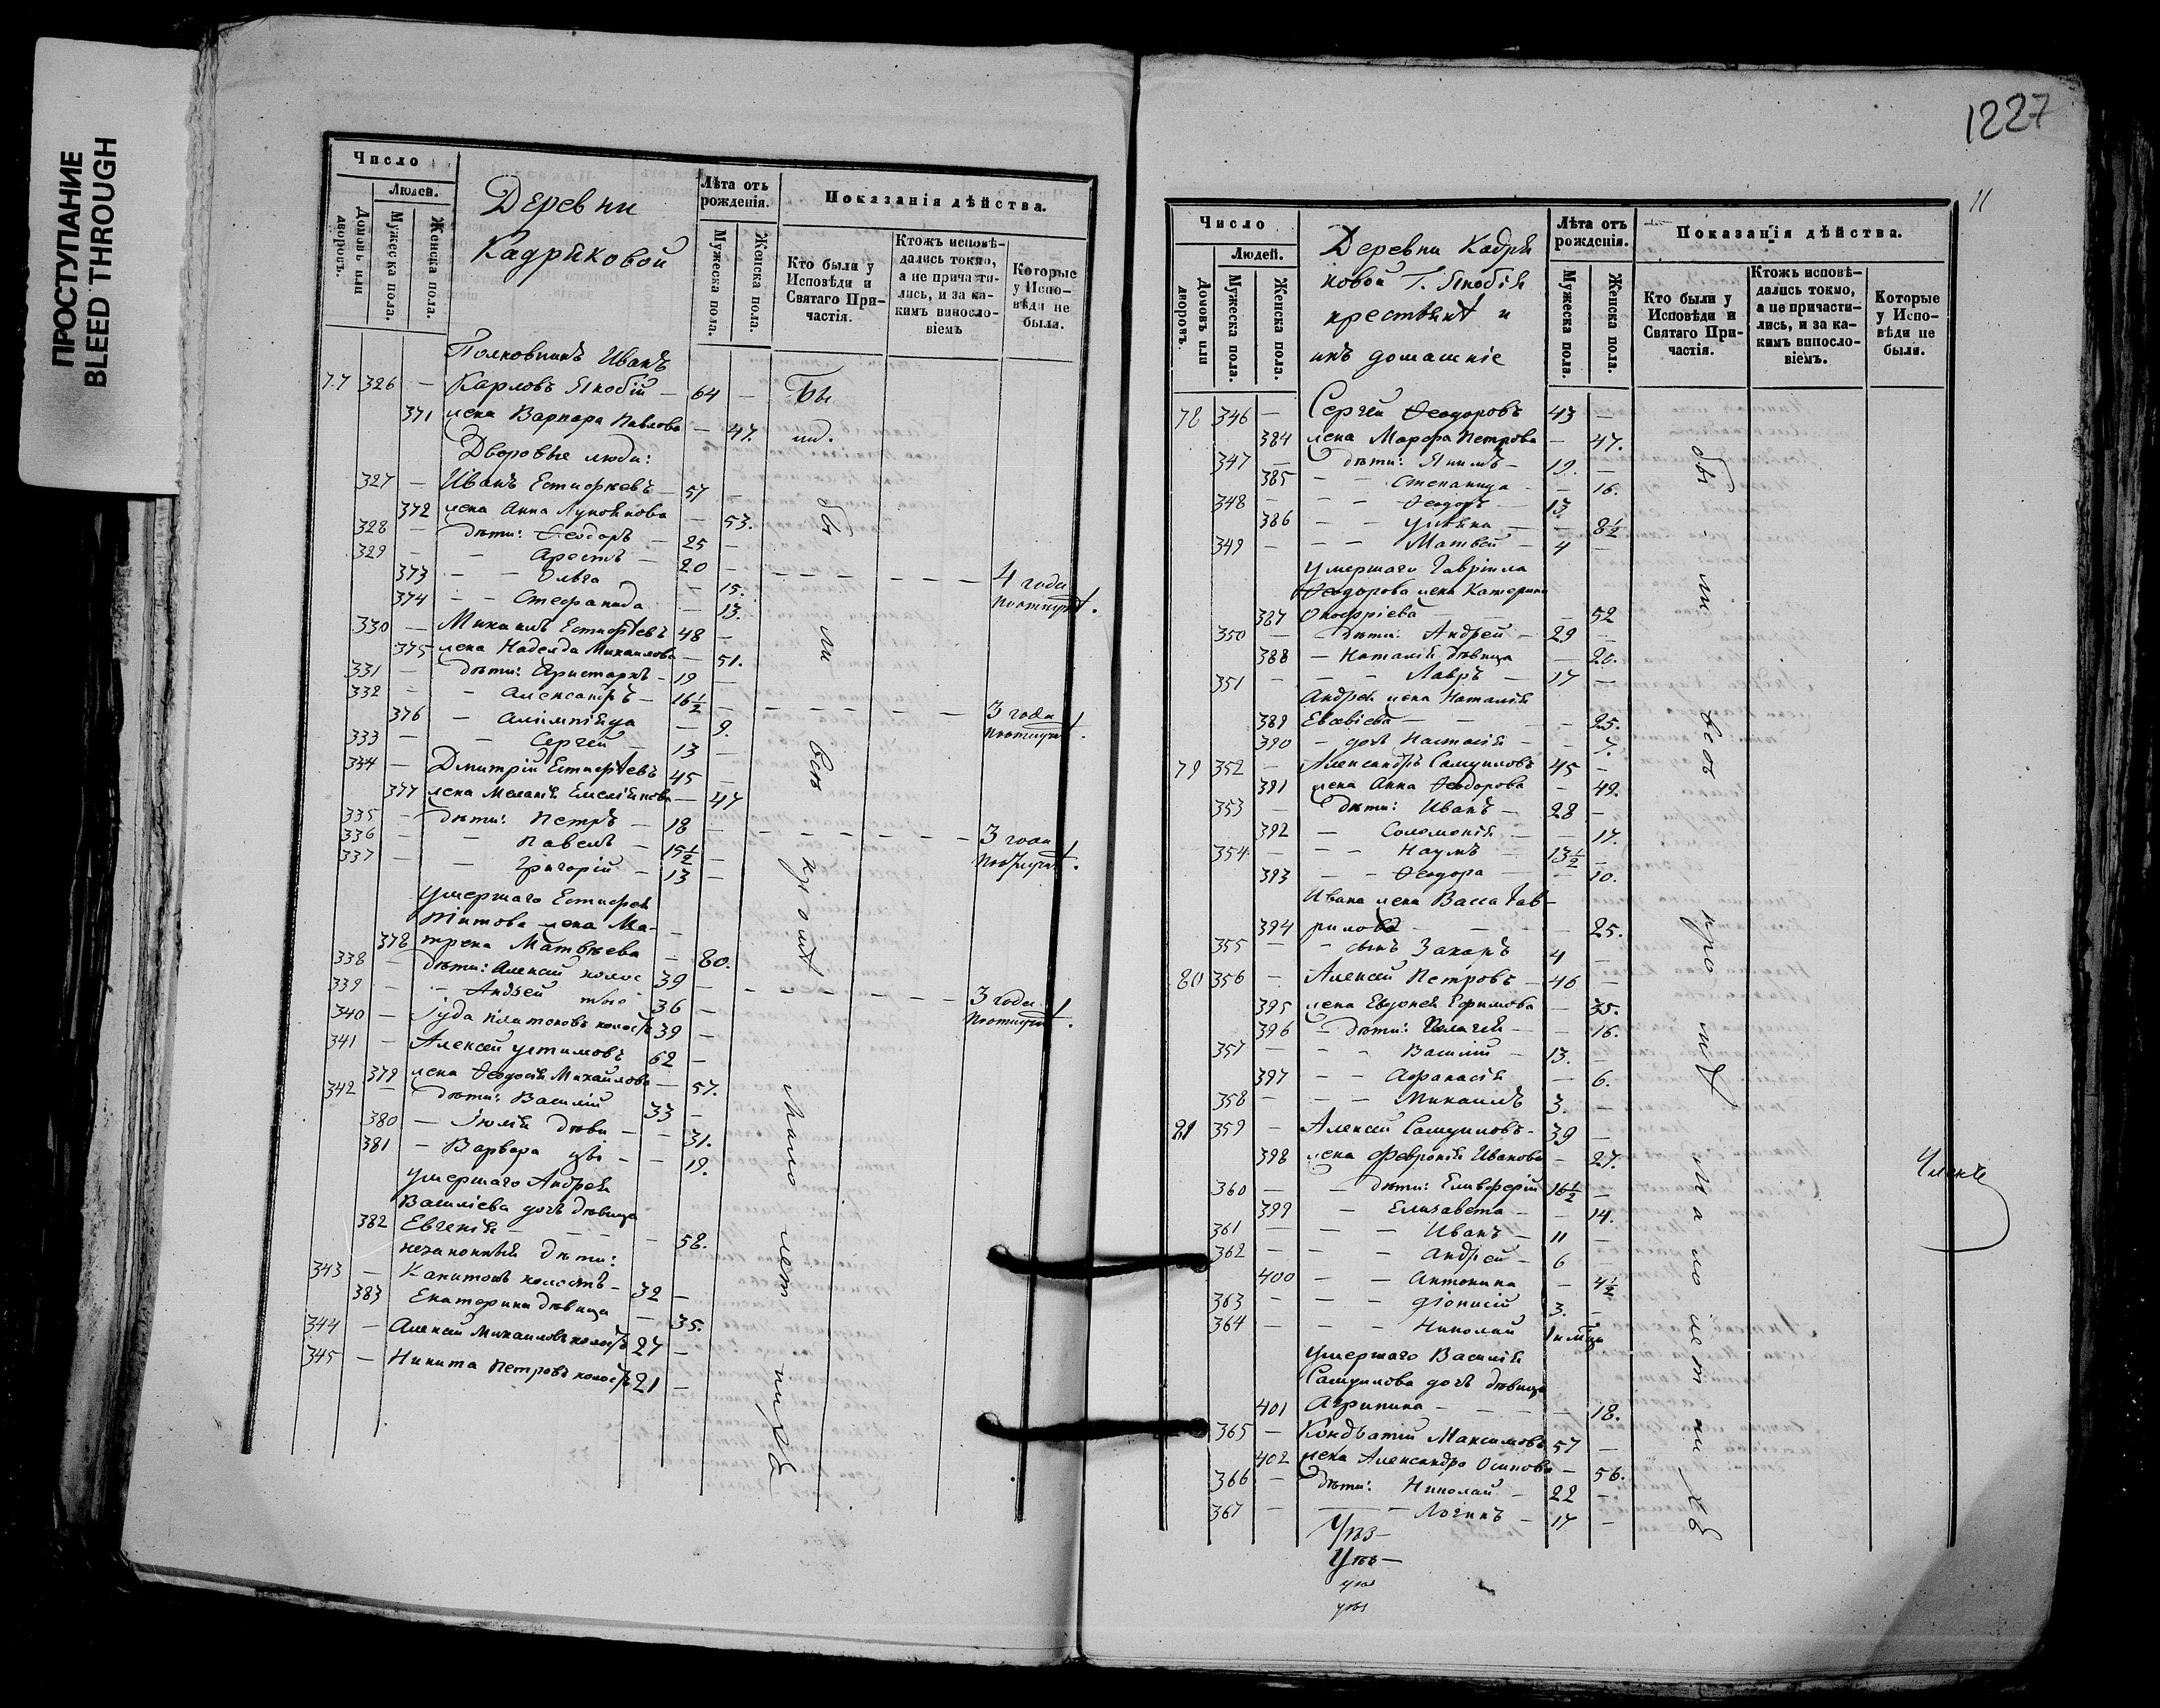 ПРОСТУПАНИЕ
BLEED THROUGH
Число
Людей.
Домовъ или дворовъ.
Мужеска пола.
Женска пола.
Деревни
Кадряковой
Лѣта отъ рожденія.
Мужеска пола.
Женска пола.
Показанія дѣйства.
Кто были у Исповѣди и Святаго Причастія.
Ктожъ исповѣдались токмо, а не причастились, и за какимъ винословіемъ
Которые у Исповѣди не были.
Полковникъ Иванъ
77 326 — Карловъ Якобій — 64 — Бы
371 жена Варвара Павлова — 47. ли.
Дворовые люди:
327 — Иванъ 57 —
372 жена Анна — 53.
328 — дѣти: Ѳеодоръ — 25 —
329 — — Орестъ — 20 —
373 — — Ольга — 15. 4 года
374 — — Стефанида — 13.
330 — Михаилъ 48 —
375 жена Надежда Михаилова — 51.
331 — дѣти: Аристархъ — 19 —
332 — — Александръ — 16½ — 3 года
376 — Алимпіяда — 9.
333 — — Сергей — 13 —
334 — Дмитрій 45 —
377 жена Меланія Емеліянова — 47
335 — дѣти: Петръ — 18 — 3 года
336 — — Павелъ — 15½ —
337 — — Григорій — 13 —
умершаго
жена Ма-
378 трена Матвѣева — 80.
338 — дѣти: Алексѣй холос 39 — 3 года
339 — — Андрей 36 —
340 — Іуда Платоновъ холостъ 39 —
341 — Алексѣй Устимовъ 62 —
379 жена Ѳеодосія Михайлова — 57.
342 — дѣти: Василій 33 —
380 — Іюлія дѣви — — 31.
381 — Варвара — — 19.
умершаго Андрея
Василіева дочь дѣвица
382 Евгенія — — — 58.
незаконныя дѣти:
343 — Капитонъ холостъ — 32 —
383 Екатерина дѣвица — 35.
344 — Алексѣй Михаиловъ холостъ 27 —
345 — Никита Петровъ холостъ 21 —
бы ли всѣ
1227
11
Число
Людей.
Домовъ или дворовъ.
Мужеска пола.
Женска пола.
Деревни Кадря
ковой Г. Якобія
крестьяне и
ихъ домашніе
Лѣта отъ рожденія.
Мужеска пола.
Женска пола.
Показанія дѣйства.
Кто были у Исповѣди и Святаго Причастія.
Ктожъ исповѣдались токмо, а не причастились, и за какимъ винословіемъ.
Которые у Исповѣди не были.
78 346 — Сергей Ѳеодоровъ 43 —
384 жена Марфа Петрова — 47.
347 — дѣти: Якимъ — 19. —
385 — — Степанида — — 16.
348 — — Ѳеодоръ — 13. —
386 — — Ульяна — — 8½
349 — — — Матвей — 4 —
умершаго Гавріила
Ѳеодорова жена Катерина
387 Онофріева — — 52
350 — дѣти: Андрей — 29 —
388 — Наталія дѣвица — 20.
351 — — — Лавръ — 17 —
Андрея жена Наталія
389 Евсевіева — — — 25.
390 — дочь Настасія — — 7.
79 352 — Александръ Самуиловъ 45 —
391 жена Анна Ѳеодорова — 49.
353 — дѣти: Иванъ — 28 —
392 — Соломонія — — 17.
354 — — — Наумъ — 13½ —
393 — — Ѳеодора — — 10.
Ивана жена Васса Гав-
394 рилова — — — 25.
355 — — сынъ Захаръ 4 —
80 356 — Алексѣй Петровъ — 46 —
395 жена Евдокея Ефимова — 35.
396 — дѣти: Пелагея — — 16.
357 — — — Василій — 13. —
397 — — Афанасія — 6.
358 — — — Михаилъ 3. —
81 359 — Алексѣй Самуиловъ — 39 —
398 жена Февронія Иванова — 27.
360 — — дѣти: Елевферій 16½ —
399 — Елизавета — — 14.
361 — — — Иванъ — 11 —
362 — — — Андрей — 6 —
400 — — Антонина — 4½
363 — — — Діонисій 3. —
364 — — — Николай
умершаго Василія
Самуилова дочь дѣвица
401 Агрипина — — — 18.
365 — Кондратій Максимовъ 57 —
402 жена Александра Осипова — 56.
366 — дѣти: Николай — 22 —
367 — — Логинъ — 17 —
бы ли всѣ